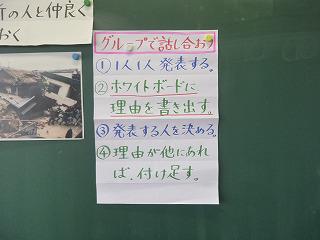 所の人と仲良く
おく
グループで話し合おう
①1人1人発表する。
②ホワイトボードに
理由を書き出す。
③発表する人を決める。
④理由が他にあれ
ば、付け足す。